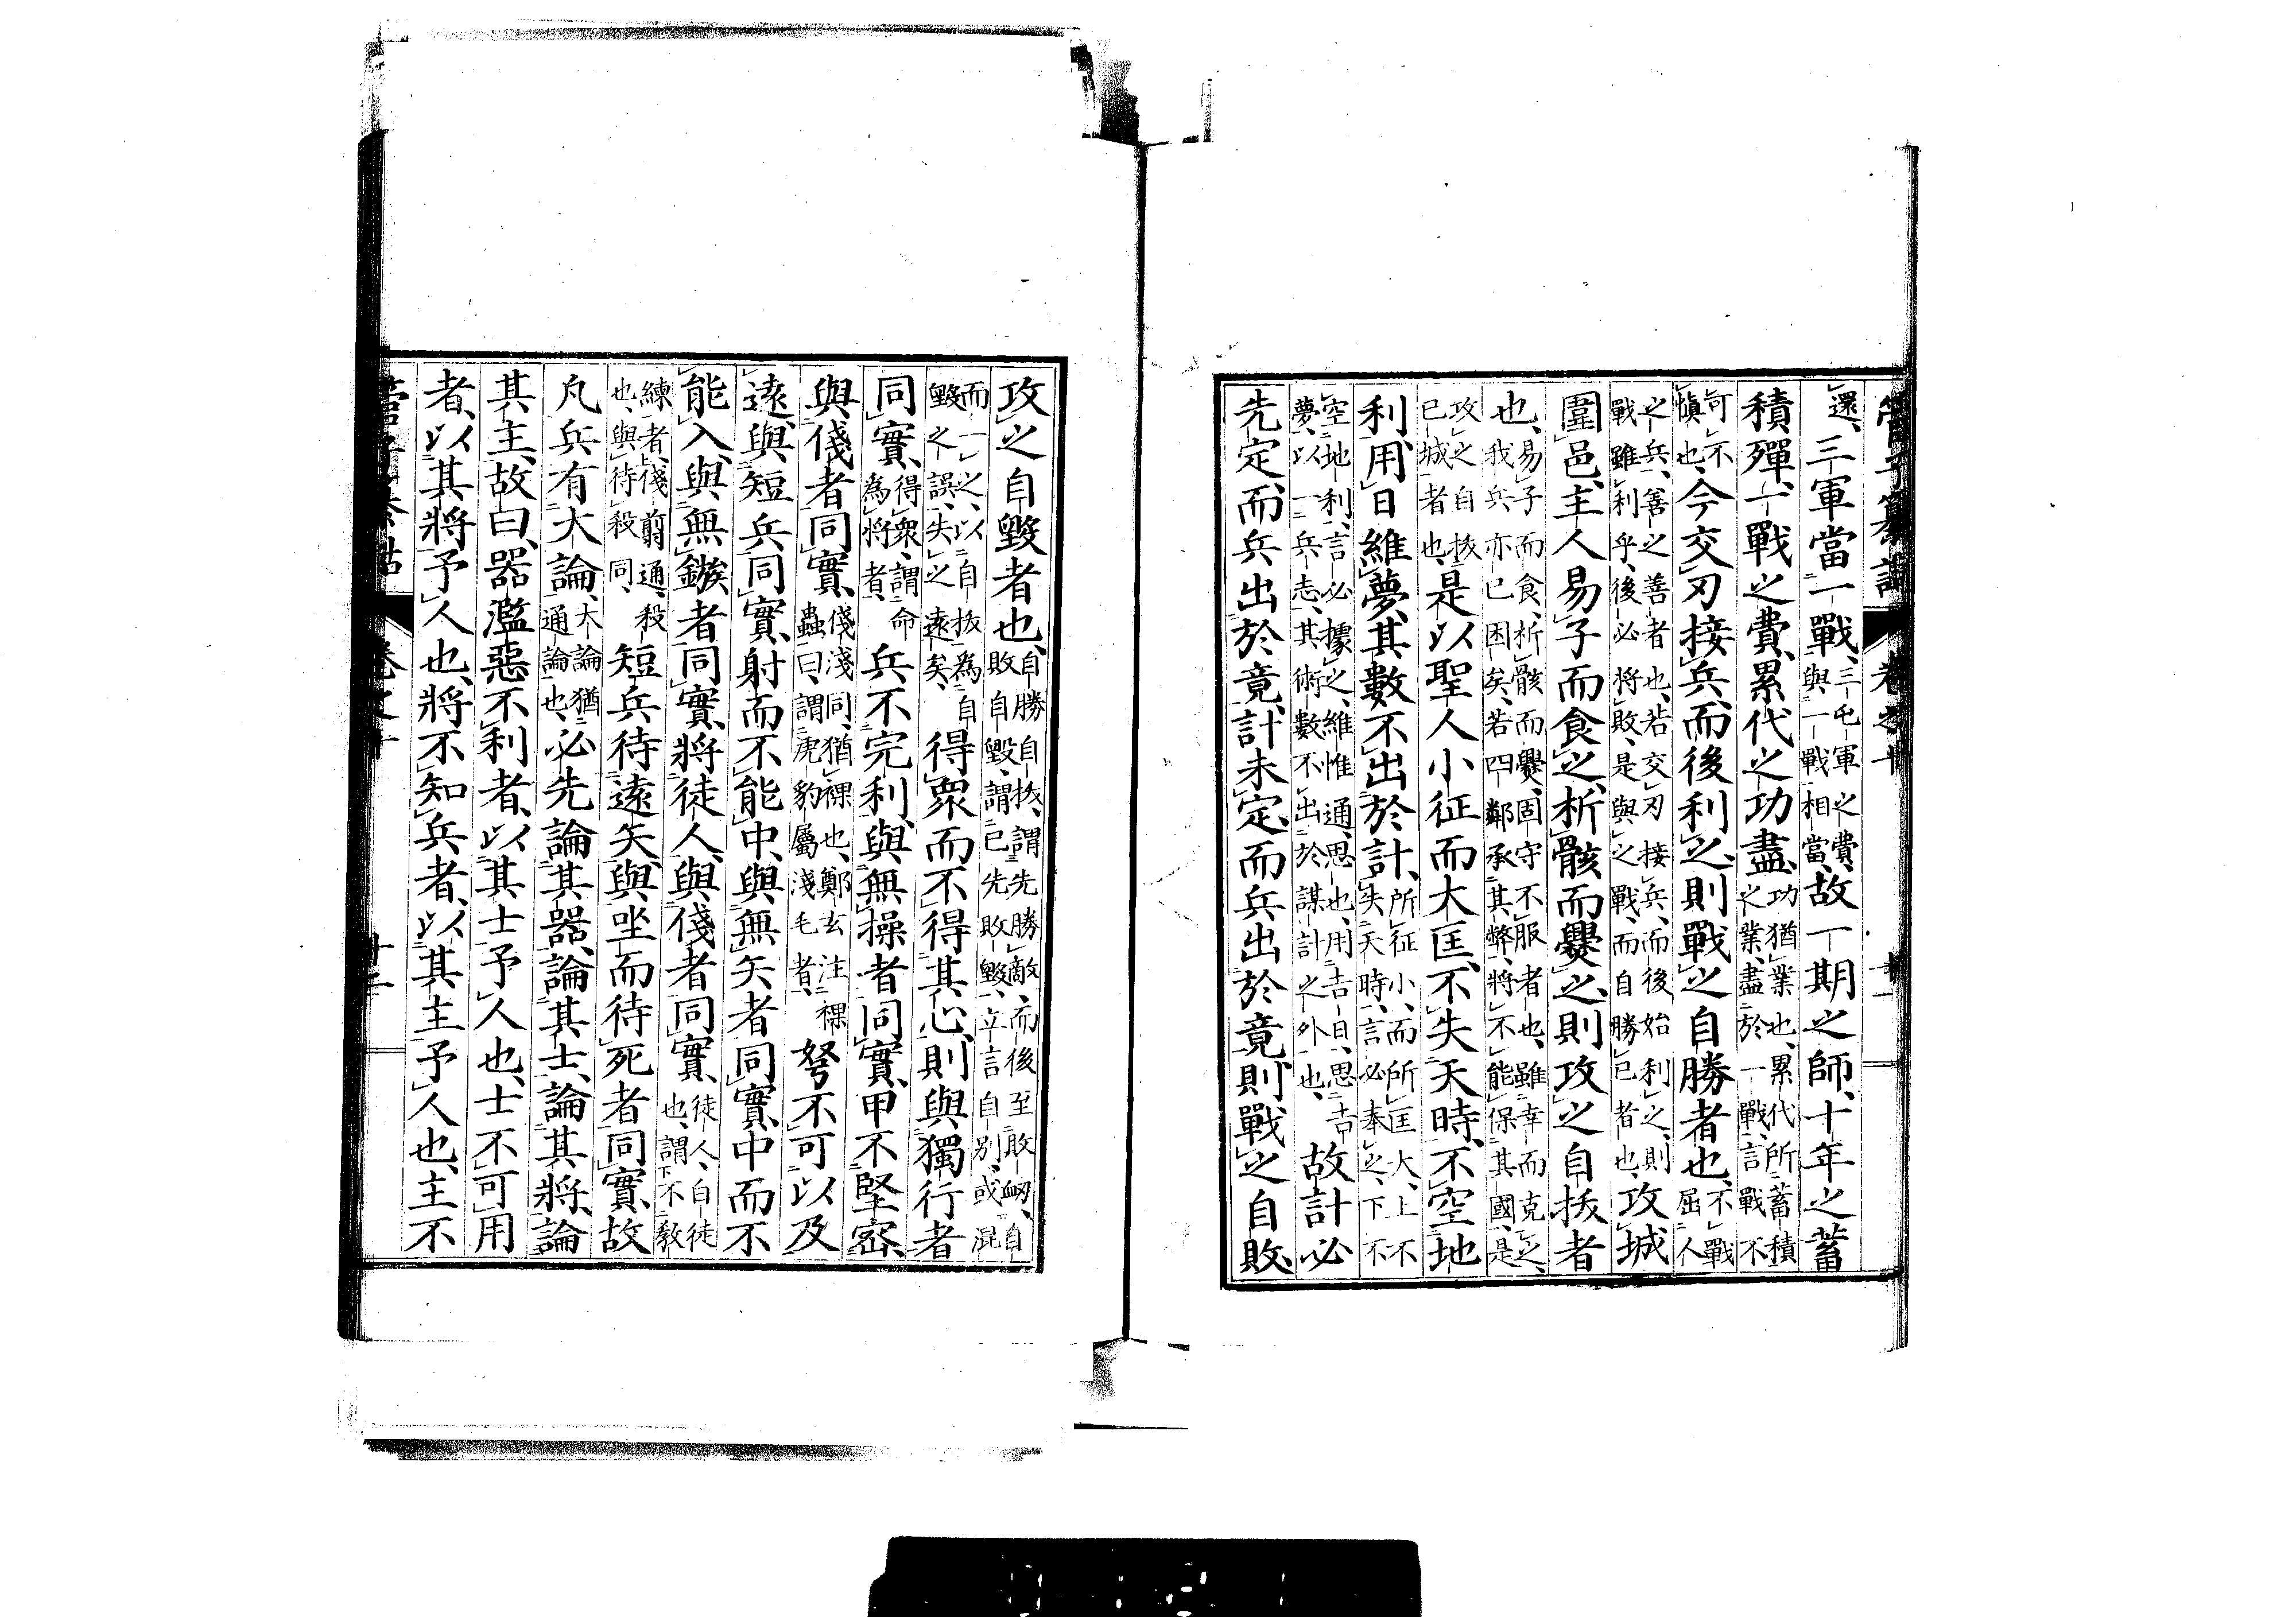 管子纂詁 卷之十 十一
還、三軍當一戰、三屯軍之費、與一戰相當、故一期之師、十年之蓄
積殫、一戰之費、累代之功盡、功猶業也、累代所蓄積之業、盡於一戰、言戰不
可不慎也、今交刃接兵、而後利之、則戰之自勝者也、不戰屈人
之兵、善之善者也、若交刃接兵、而後始利之、則戰雖利乎、後必將敗、是與之戰、而自勝已者也、攻城
圍邑、主人易子而食之、析骸而爨之、則攻之自拔者
也、易子而食、析骸而爨、固守不服者也、雖幸而克之、我兵亦已困矣、若四鄰承其弊、將不能保其國、是
攻之自拔已城者也、是以聖人小征而大匡、不失天時、不空地
利、用日維夢、其數不出於計、所征小、而所匡大、上不失天時、言必奉之、下不
空地利、言必據之、維惟通、思也、用吉日、思吉夢、以一兵志、其術數不出於謀計之外也、故計必
先定、而兵出於竟、計未定、而兵出於竟、則戰之自敗、
攻之自毀者也、自勝自拔、謂先勝敵、而後至敗衂、自敗自毀、謂已先敗毀、立言自別、或混
而一之、以自拔為自毀之誤、失之遠矣、得衆而不得其心、則與獨行者
同實、得衆、謂命為將者、兵不完利、與無操者同實、甲不堅密、
與俴者同實、俴淺同、猶裸也、鄭玄注裸蟲曰、謂虎豹屬淺毛者、弩不可以及
遠、與短兵同實、射而不能中、與無矢者同實、中而不
能入、與無鏃者同實、將徒人、與俴者同實、徒人、白徒也、謂下不教
練者、俴翦通、殺也、與待殺同、短兵待遠矢、與坐而待死者同實、故
凡兵有大論、大論猶通論也、必先論其器、論其士、論其將、論
其主、故曰、器濫惡不利者、以其士予人也、士不可用
者、以其將予人也、將不知兵者、以其主予人也、主不
管子纂詁 卷之十 十二